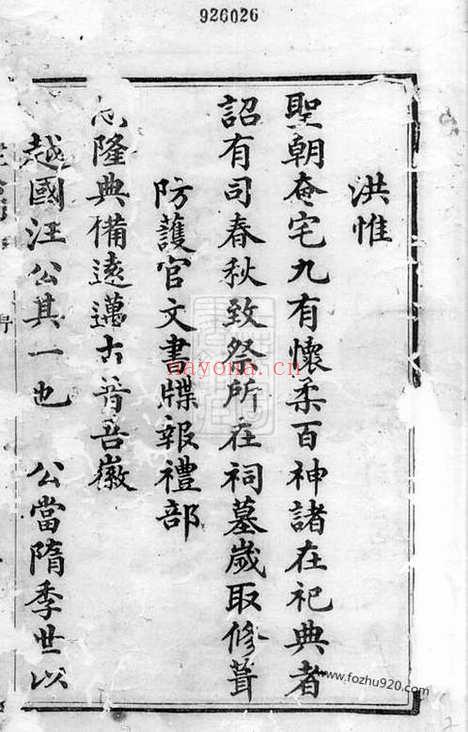 926026
洪惟
聖朝奄宅九有懷柔百神諸在祀典者
詔有司春秋致祭所在祠墓歲取修葺
防護官文書牒報禮部
隆典備遠邁古昔吾徽
越國汪公其一也 公當隋季世以
nayona.cn
www.fozhu920.com